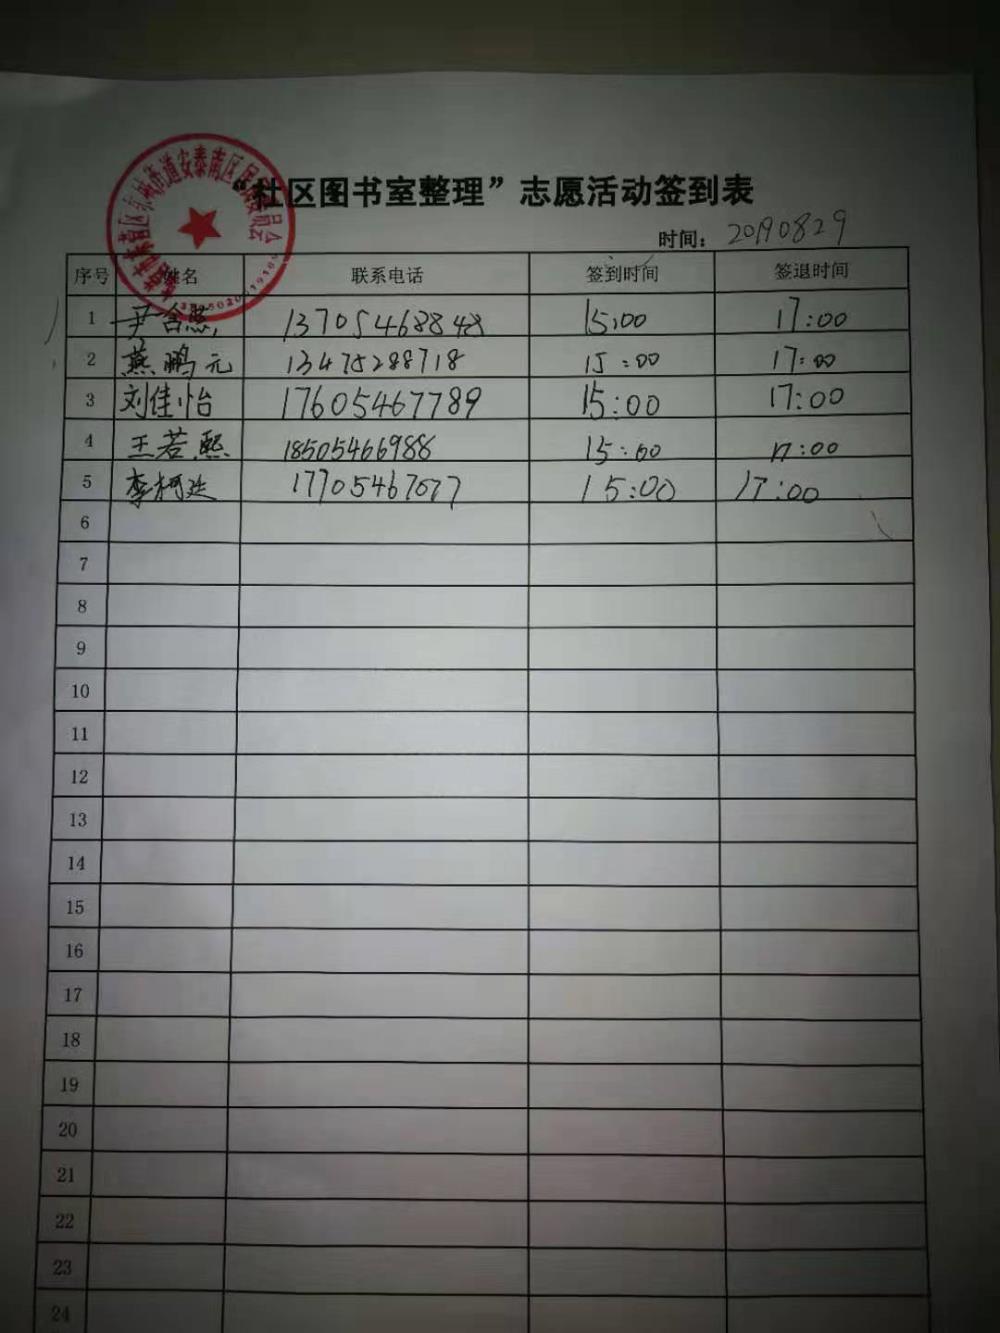 “社区图书室整理”志愿活动签到表
时间：20190829
序号 姓名 联系电话 签到时间 签退时间
1 尹含熙 13705468848 15:00 17:00
2 燕鹏元 13475288718 15:00 17:00
3 刘佳怡 17605467789 15:00 17:00
4 王若熙 18505466988 15:00 17:00
5 李柯廷 17705467077 15:00 17:00
6
7
8
9
10
11
12
13
14
15
16
17
18
19
20
21
22
23
24